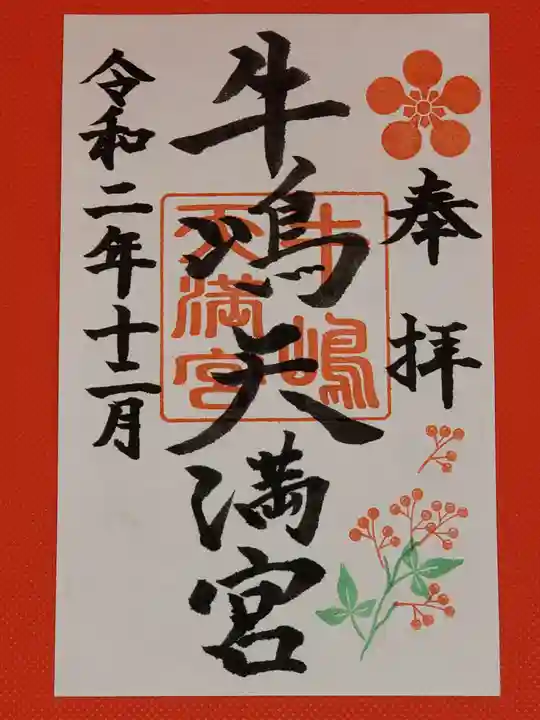 奉拝
牛嶋天満宮
牛嶋
天満宮
令和二年十二月